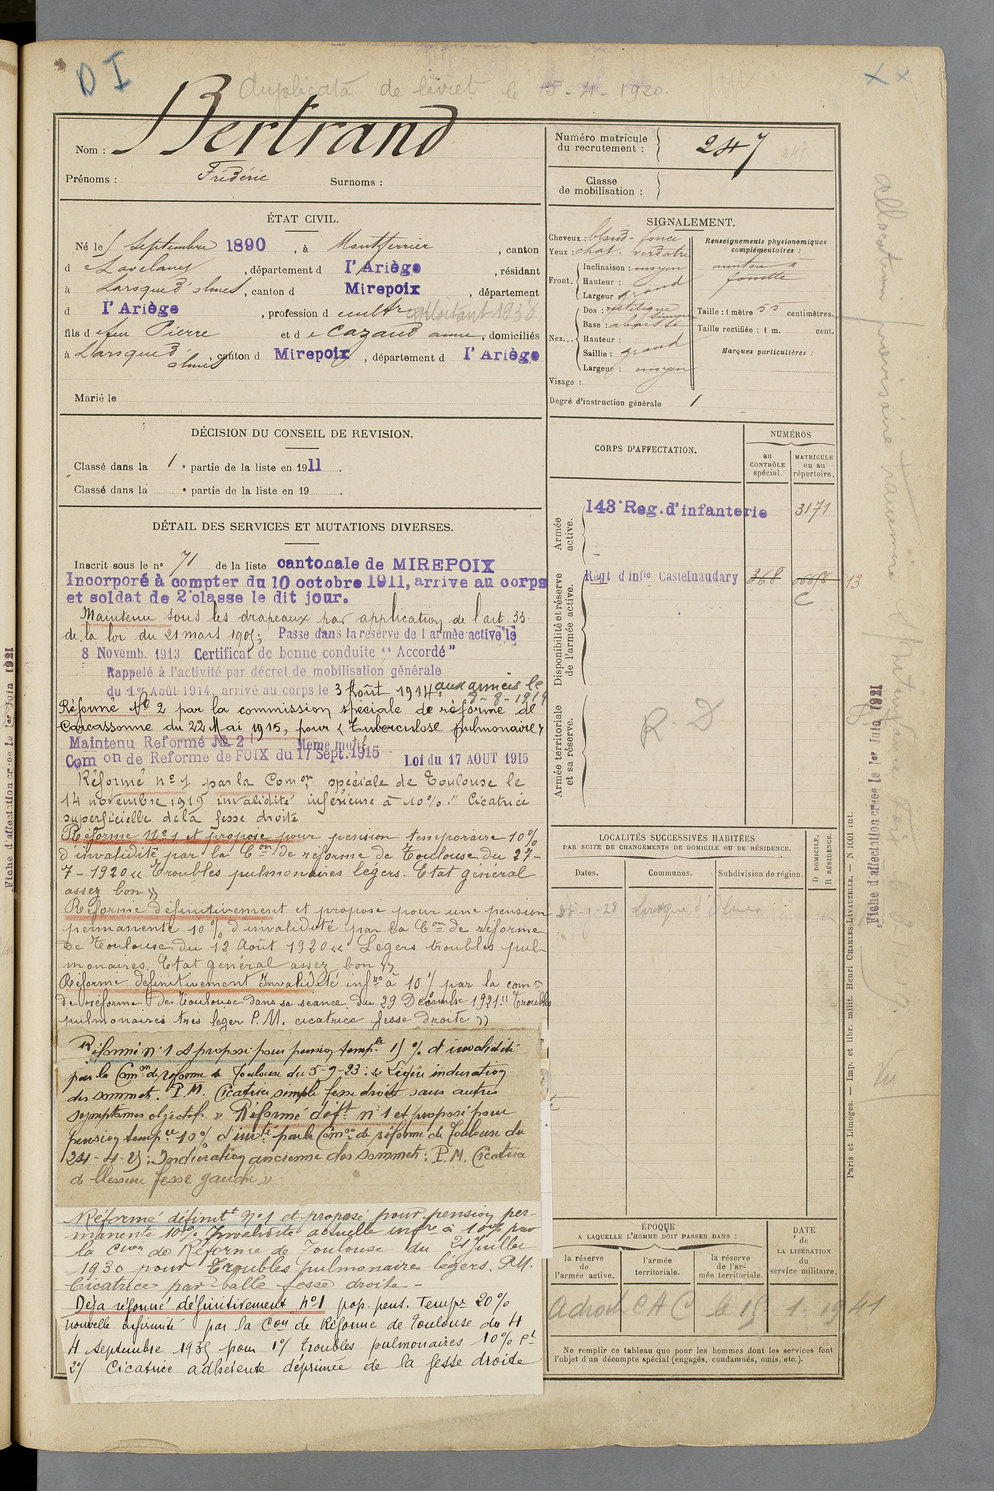 D I
Duplicata de livret le 15-4-1920.
Nom : Bertrand
Prénoms : Frédéric Surnoms :
Numéro matricule du recrutement : 247
Classe de mobilisation :
ÉTAT CIVIL.
Né le 5 Septembre 1890, à Montferrier, canton
d Lavelanet, département d l'Ariège, résidant
à Laroque d'olmes, canton d Mirepoix, département
d l'Ariège, profession d cultr exploitant 1938
fils d e feu Pierre et d e Cazaud anne, domiciliés
à Laroque d'olmes, canton d Mirepoix, département d l'Ariège
Marié le
SIGNALEMENT.
Cheveux : blond-foncé
Yeux : chat. verdatre
Front. Inclinaison : moyen
Hauteur :
Largeur grand
Nez... Dos : rectiligne
Base : abaissée
Hauteur :
Saillie : grand
Largeur : moyen
Visage :
Degré d'instruction générale 1
Renseignements physionomiques complémentaires :
menton à fossette
Taille : 1 mètre 55 centimètres.
Taille rectifiée : 1 m. cent.
Marques particulières :
DÉCISION DU CONSEIL DE REVISION.
Classé dans la 1e partie de la liste en 1911.
Classé dans la e partie de la liste en 19 .
DÉTAIL DES SERVICES ET MUTATIONS DIVERSES.
Inscrit sous le n° 71 de la liste cantonale de MIREPOIX
Incorporé à compter du 10 octobre 1911, arrive au corps
et soldat de 2e classe le dit jour.
Maintenu sous les drapeaux par application de l'art 33
de la loi du 21 mars 1905; Passe dans la reserve de l armée active le
8 Novemb. 1913 Certificat de bonne conduite "Accordé"
Rappelé à l'activité par décret de mobilisation générale
du 1er Août 1914, arrivé au corps le 3 Août 1914 aux armées le
8-8-1914
Réformé No 2 par la commission spéciale de réforme de
Carcassonne du 22 Mai 1915, pour "Tuberculose pulmonaire"
Maintenu Reformé No 2 Meme motif
Com on de Reforme de FOIX du 17 Sept. 1915 Loi du 17 AOUT 1915
Réformé no 1 par la Comon spéciale de Toulouse le
14 novembre 1919 invalidité inférieure à 10% "Cicatrice
superficielle de la fesse droite
Réformé No 1 et proposé pour pension temporaire 10%
d'invalidité par la Con de réforme de Toulouse du 27-
7-1920 "Troubles pulmonaires légers. Etat général
assez bon"
Réformé définitivement et proposé pour une pension
permanente 10% d'invalidité par la Con de réforme
de Toulouse du 12 Août 1920 "Légers troubles pul-
monaires. Etat général assez bon"
Réformé définitivement Invalidité infre à 10% par la comon
de réforme de Toulouse dans sa séance du 29 Décembre 1921 "Troubles
pulmonaires très leger P.M. cicatrice fesse droite"
Réformé n° 1 et proposé pour pension tempre 15% d'invalidité
par la Comon de réforme de Toulouse du 5-9-23 : "Légère induration
des sommets. P.M. Cicatrice simple fesse droite sans autres
symptômes objectifs." Réformé déft n° 1 et proposé pour
pension tempre 10% d'invté par la Comon de réforme de Toulouse du
24-4-25 : Induration ancienne des sommets : P.M. Cicatrice
de blessure fesse gauche"
Réformé définitt no 1 et proposé pour pension per-
manente 10% Invalidité actuelle infre à 10% par
la Con de Réforme de Toulouse du 21 Juillet
1930 pour Troubles pulmonaires légers. P.M.
Cicatrice par balle fesse droite.-
Déja réformé définitivement no 1 prop. pens. tempre 20%
nouvelle infirmité par la Con de Réforme de Toulouse du 4
4 septembre 1935 pour 1°/ troubles pulmonaires 10% Pt
2°/ Cicatrice adhérente déprimée de la fesse droite
CORPS D'AFFECTATION.
NUMÉROS
au CONTRÔLE spécial.
MATRICULE ou au répertoire.
Armée active.
143e Reg. d'infanterie 3171
Disponibilité et réserve de l'armée active.
Régt d'Infie Castelnaudary 368 13
Armée territoriale et sa réserve.
R. D
LOCALITÉS SUCCESSIVES HABITÉES
PAR SUITE DE CHANGEMENTS DE DOMICILE OU DE RÉSIDENCE.
Dates. Communes. Subdivision de région. D. DOMICILE, R. RÉSIDENCE.
Laroque d'Olmes
ÉPOQUE
A LAQUELLE L'HOMME DOIT PASSER DANS :
la réserve de l'armée active.
l'armée territoriale.
la réserve de l'armée territoriale.
DATE de LA LIBÉRATION du service militaire.
a droit C A C le 15 1. 1941
Ne remplir ce tableau que pour les hommes dont les services font
l'objet d'un décompte spécial (engagés, condamnés, omis, etc.).
Paris et Limoges. — Imp. et libr. milit. Henri CHARLES-LAVAUZELLE. — N 1001 int.
Fiche d'affectation créée le 1er Juin 1921
allocation provisoire
Fiche d'affectation créée le 1er Juin 1921